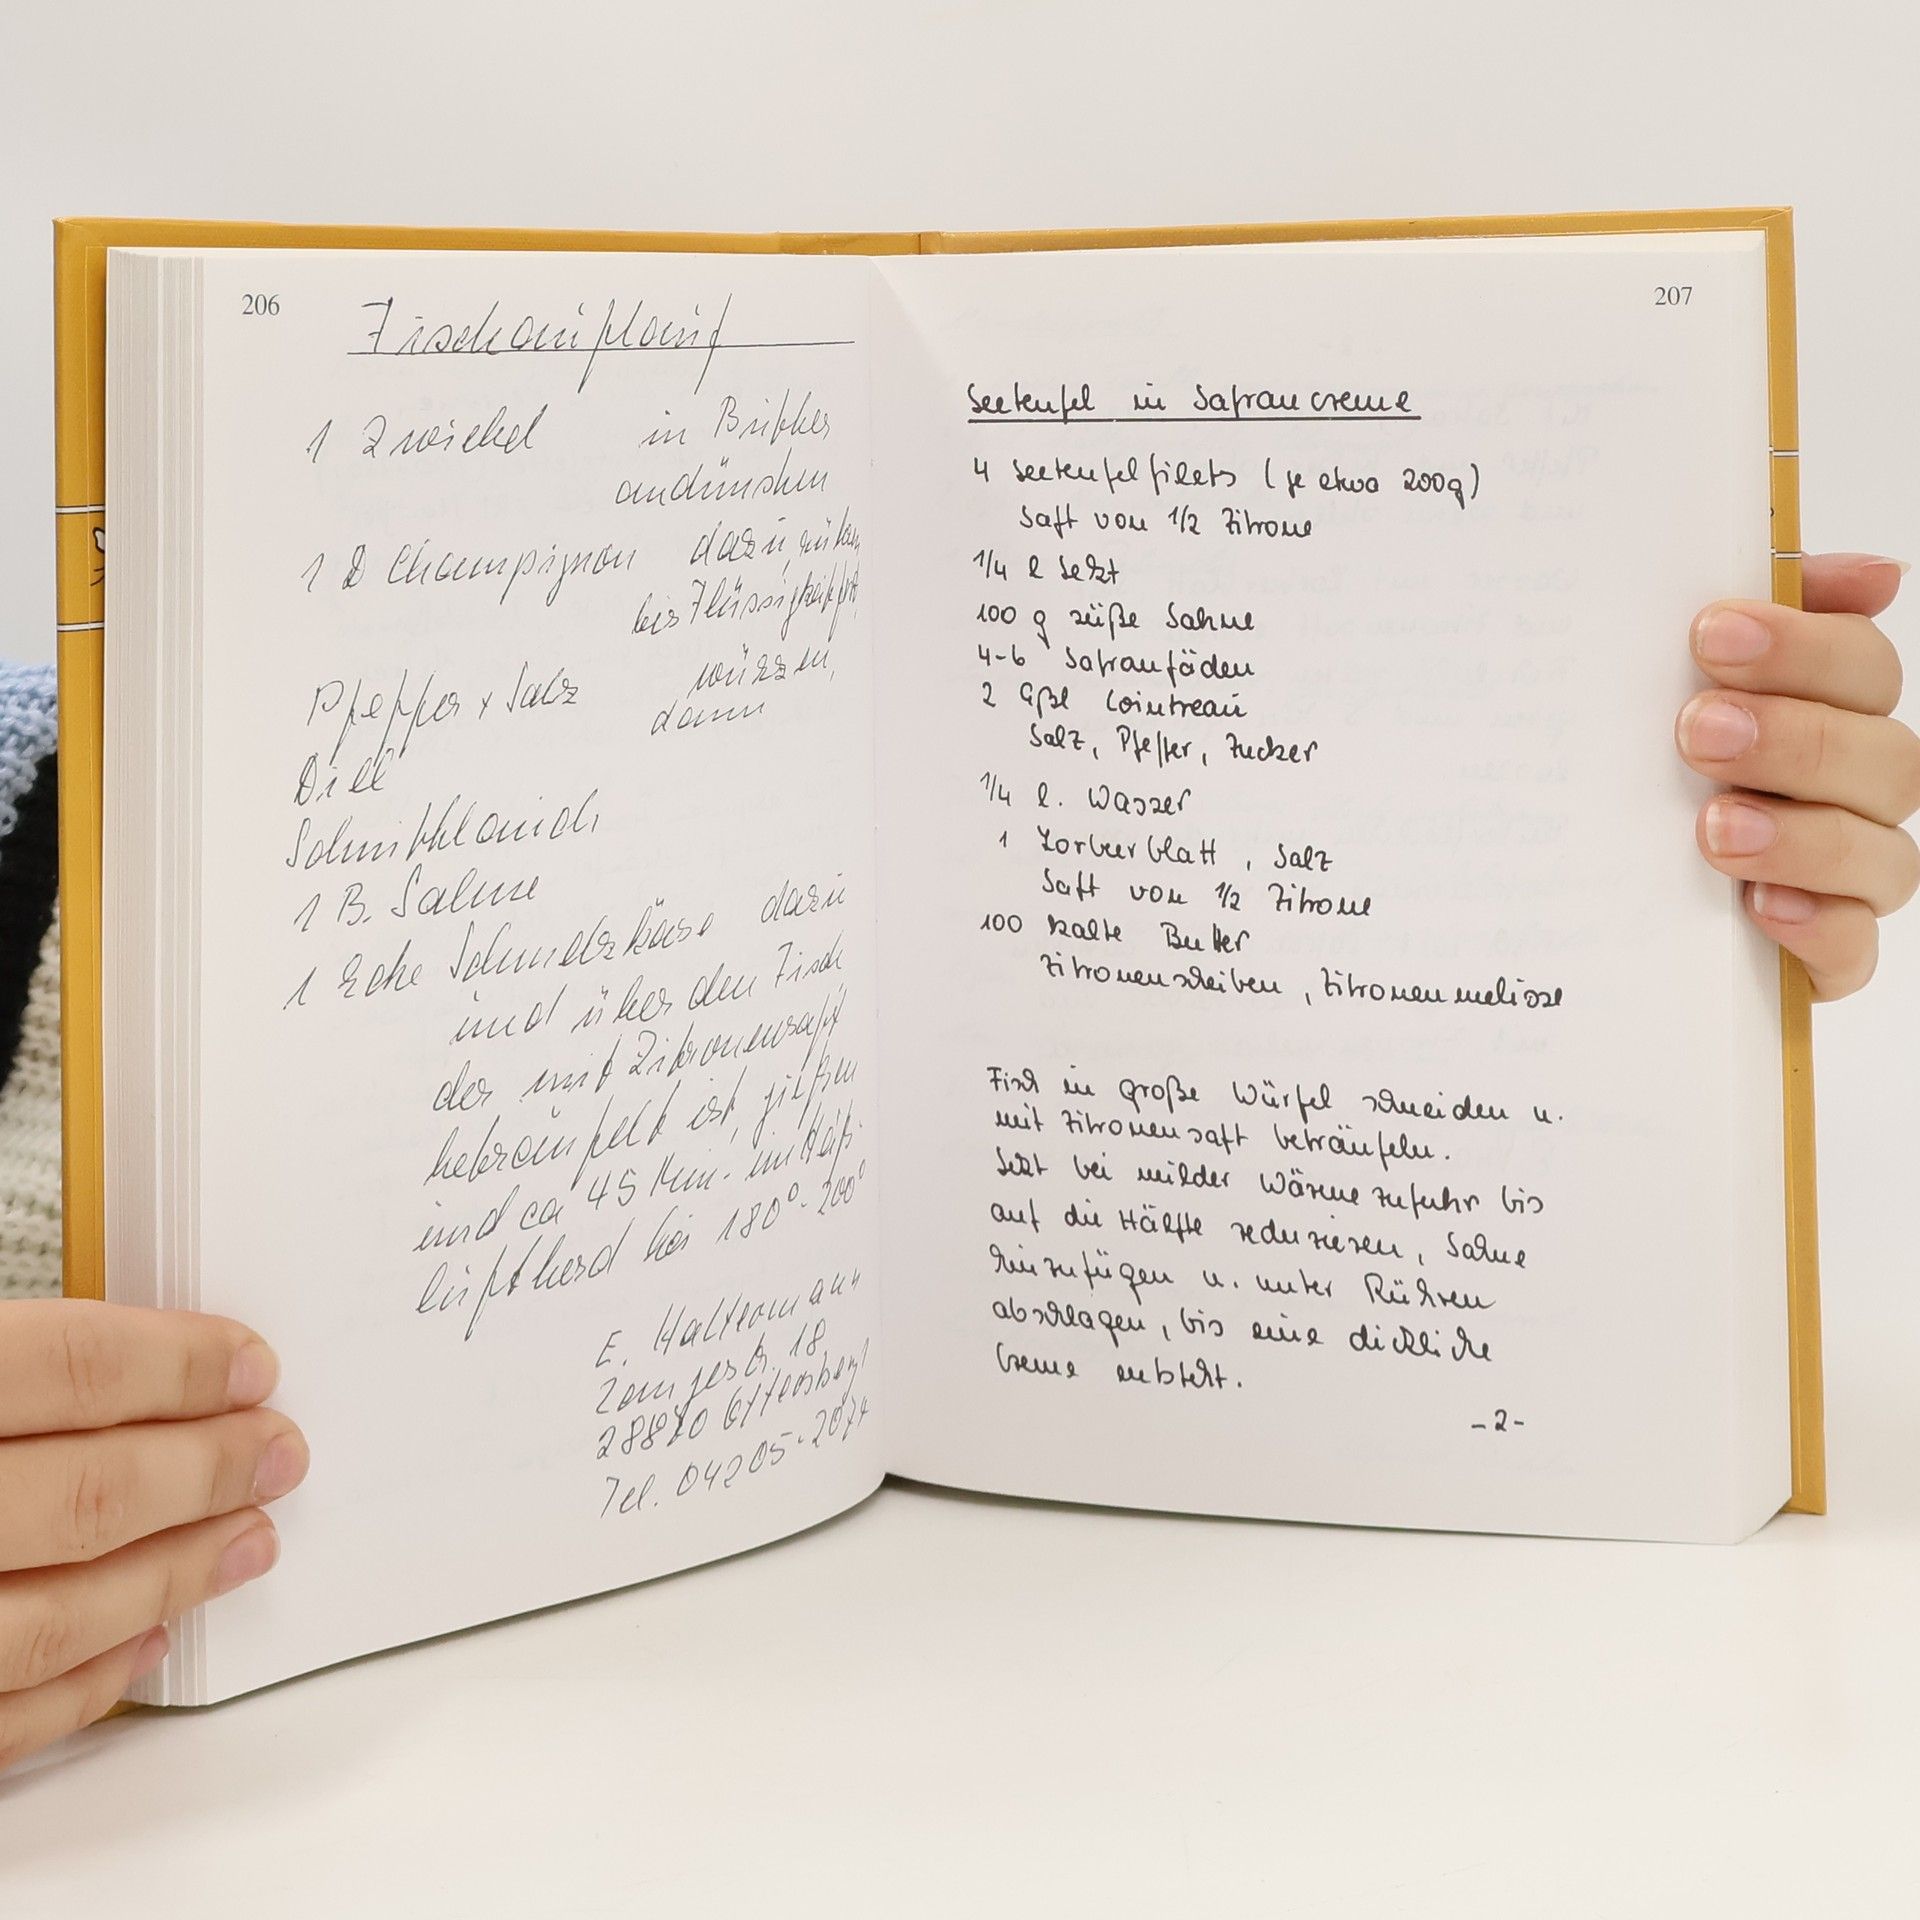 206
Fischauflauf
1 Zwiebel in Butter
andünsten
1 D Champignon dazu,
bis Flüssigkeit
Pfeffer + Salz würzen,
dann
Dill
Schnittlauch
1 B. Sahne
1 Ecke Schmelzkäse dazu
und über den Fisch
der mit Zitronensaft
beträufelt ist, gießen
und ca 45 Min. im Heiß-
luftherd bei 180°-200°
E. Haltermann
28870 Ottersberg
Tel. 04205-2074
207
Seeteufel in Safrancreme
4 Seeteufelfilets (je etwa 200g)
Saft von 1/2 Zitrone
1/4 l Sekt
100 g süße Sahne
4-6 Safranfäden
2 Eßl Cointreau
Salz, Pfeffer, Zucker
1/4 l. Wasser
1 Lorbeerblatt, Salz
Saft von 1/2 Zitrone
100 kalte Butter
Zitronenscheiben, Zitronenmelisse
Fisch in große Würfel schneiden u.
mit Zitronensaft beträufeln.
Sekt bei milder Wärmezufuhr bis
auf die Hälfte reduzieren, Sahne
hinzufügen u. unter Rühren
abschlagen, bis eine dickliche
Creme entsteht.
-2-